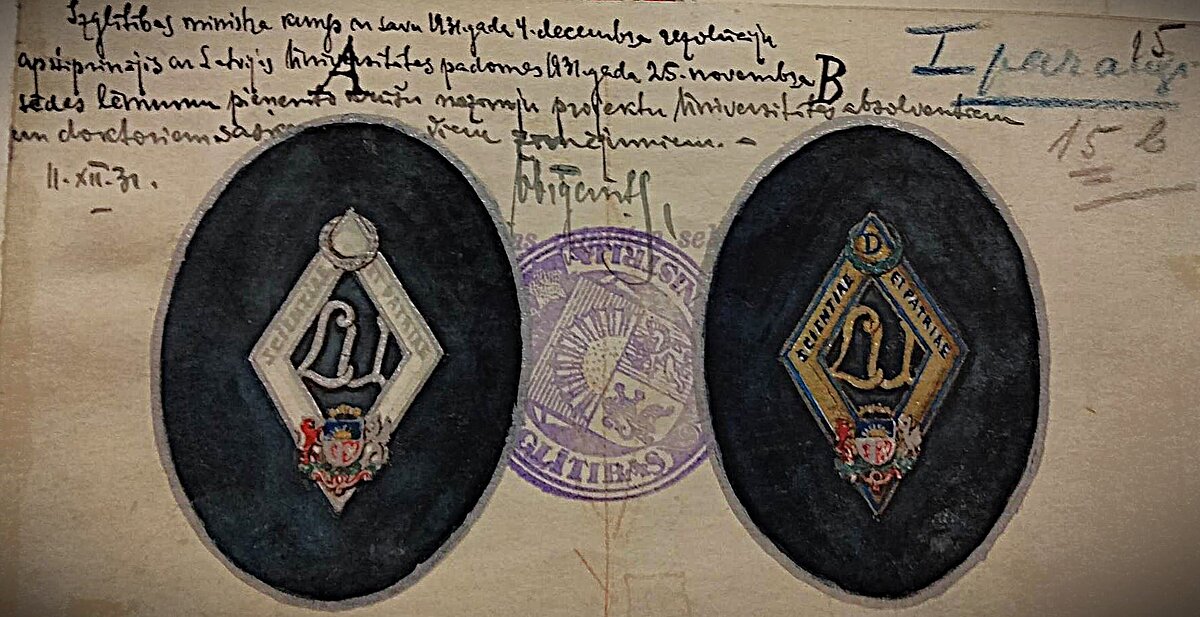 Izglītības ministra kungs ar savu 1931. gada 4. decembra rezolūciju
apstiprinājis ar Latvijas Universitātes padomes 1931. gada 25. novembra
sēdes lēmumu pieņemto krūšu nozīmju projektu Universitātes absolventiem
un doktoriem
zīmējumiem. –
11. XII. 31.
A
B
I
15
15 b
SCIENTIAE ET PATRIAE
LU
D
SCIENTIAE ET PATRIAE
LU